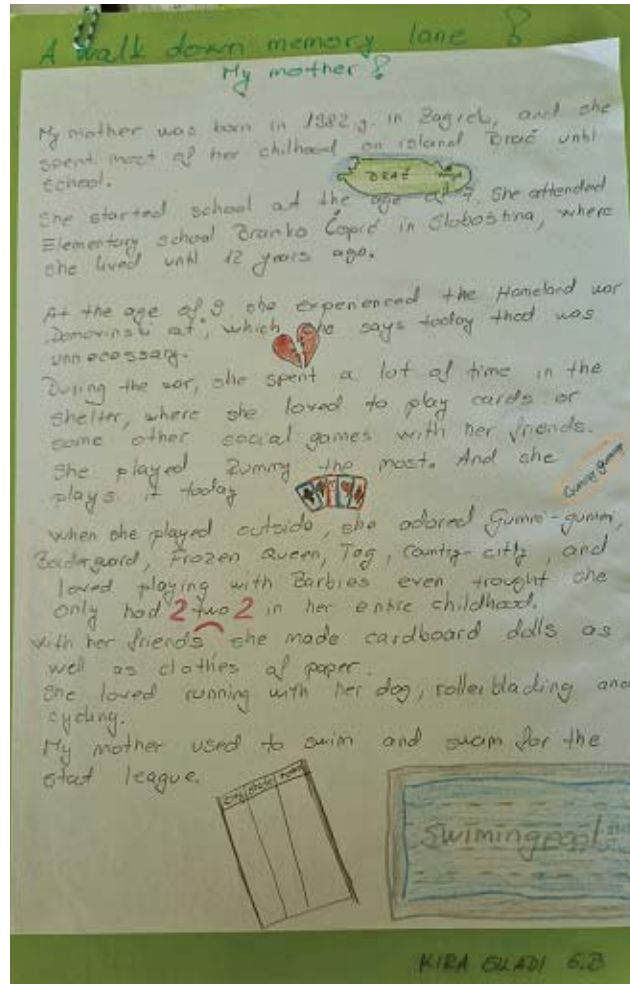 A walk down memory lane !
My mother !
My mother was born in 1982.g. in Zagreb, and she
spent most of her chilhood on island Brač until
school.
BRAČ
She started school at the age of 7. She attended
Elementary school Branko Ćopić in Sloboština, where
she lived until 12 years ago.
At the age of 9 she experienced the Homeland war
Domovinski rat, which she says today that was
unnecessary.
During the war, she spent a lot of time in the
shelter, where she loved to play cards or
some other social games with her friends.
She played Rummy the most. And she
plays it today
Gummy gummy
When she played outside, she adored Gummi-gummi,
Borderguard, Frozen Queen, Tag, Country-city, and
loved playing with Barbies even trought she
only had 2 two 2 in her entire childhood.
With her friends she made cardboard dolls as
well as clothes of paper.
She loved running with her dog, rollerblading and
cycling.
My mother used to swim and swam for the
stat league.
city state
swimingpool
KIRA GLADI 6.B